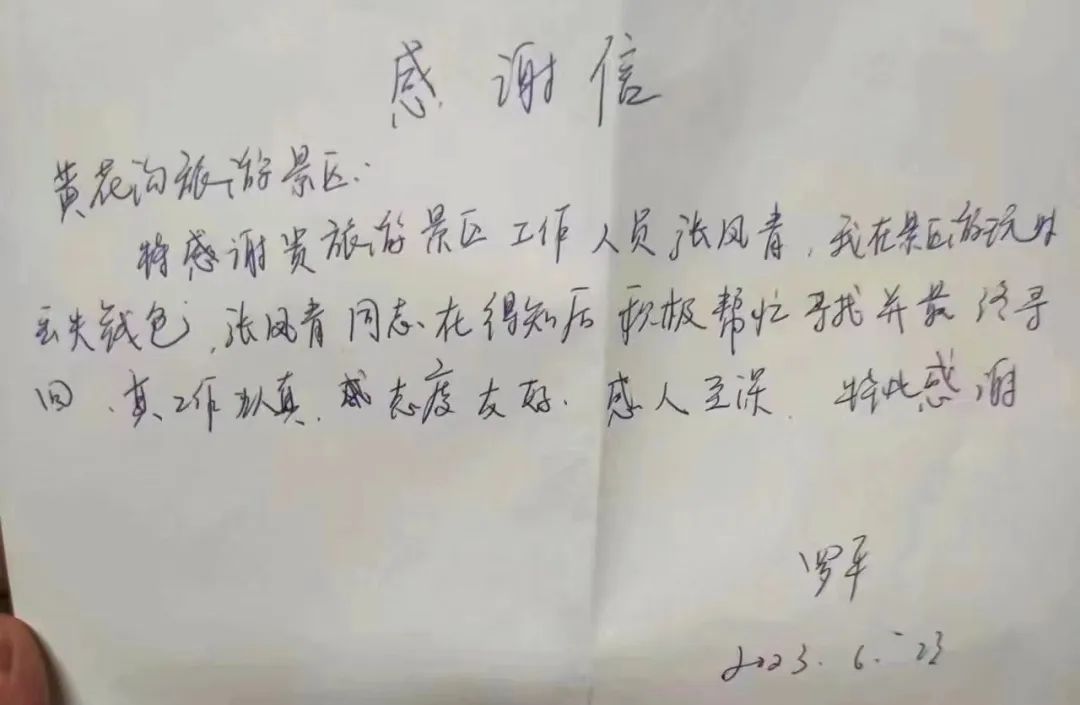 感谢信
黄花沟旅游景区:
特感谢贵旅游景区工作人员张凤青,我在景区游玩时
丢失钱包,张凤青同志在得知后积极帮忙寻找并最终寻
回,其工作认真,态度友好,感人至深,特此感谢
罗平
2023.6.23